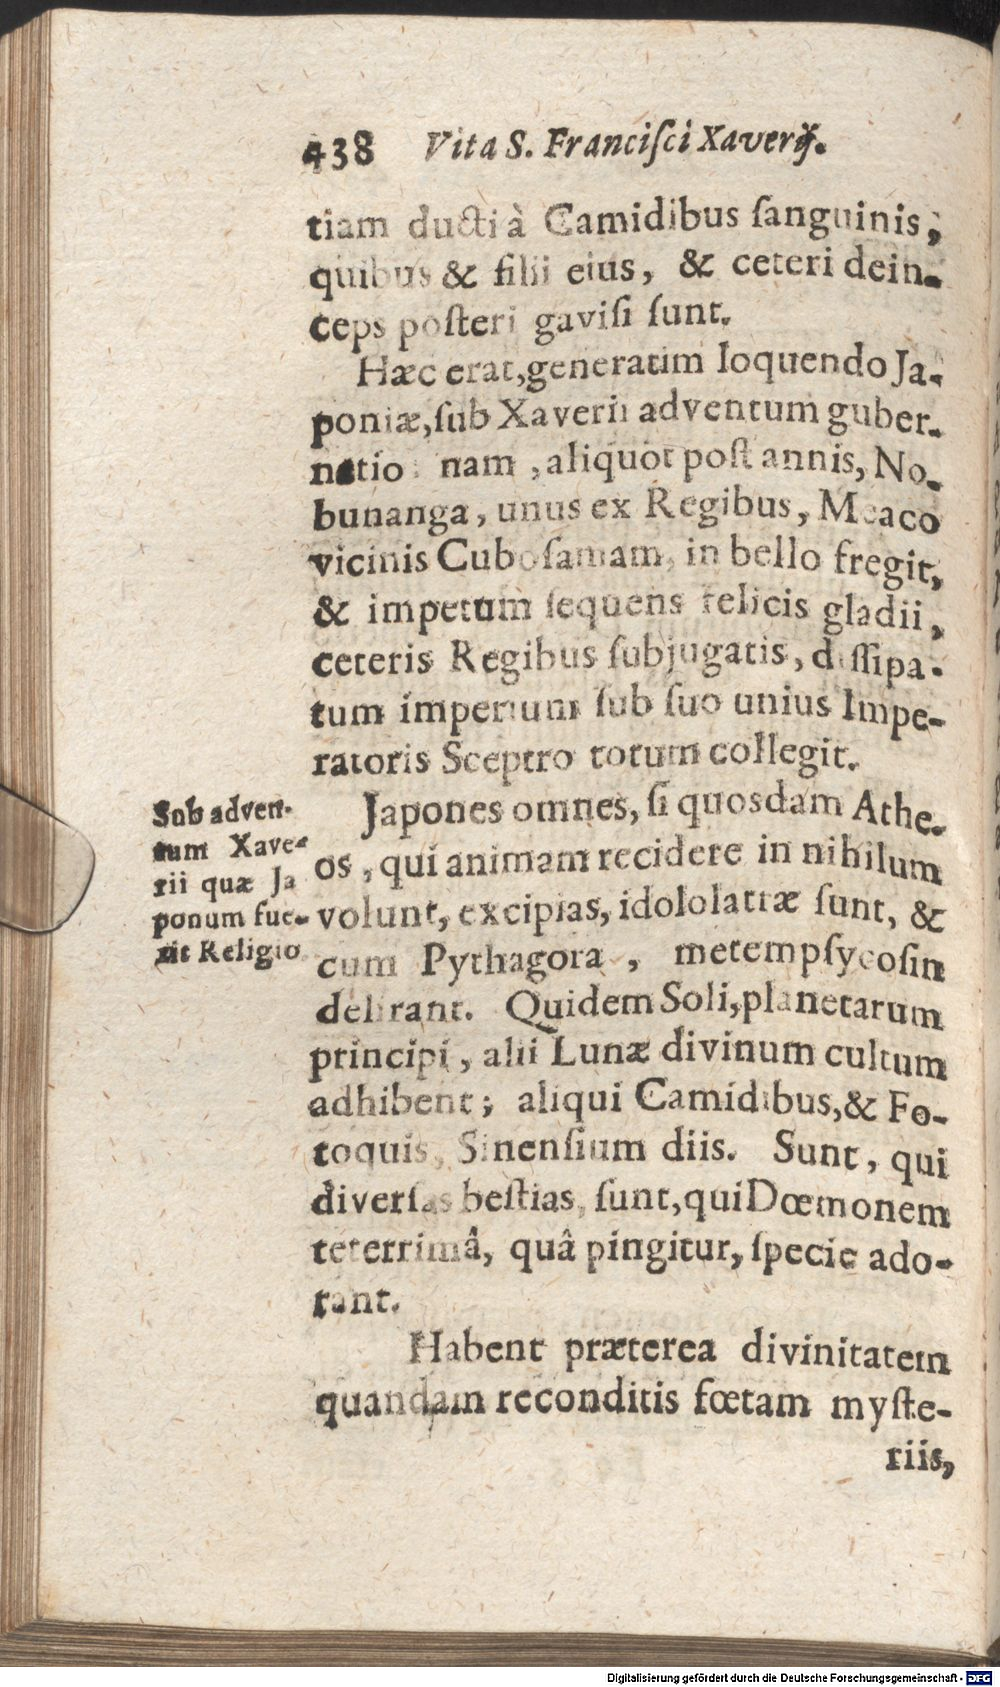 438 Vita S. Franciſci Xaverij.
tiam ducti à Camidibus ſanguinis,
quibus & filii eius, & ceteri dein-
ceps poſteri gaviſi ſunt.
Hæc erat, generatim loquendo Ja-
poniæ, ſub Xaverii adventum guber-
natio: nam, aliquot poſt annis, No-
bunanga, unus ex Regibus, Meaco
vicinis Cuboſamam, in bello fregit,
& impetum ſequens felicis gladii,
ceteris Regibus ſubjugatis, diſſipa-
tum imperium ſub ſuo unius Impe-
ratoris Sceptro totum collegit.
Sub adven-
tum Xave-
rii quæ Ja
ponum fue-
rit Religio.
Japones omnes, ſi quosdam Athe-
os, qui animam recidere in nihilum
volunt, excipias, idololatræ ſunt, &
cum Pythagora, metempſycoſin
delirant. Quidem Soli, planetarum
principi, alii Lunæ divinum cultum
adhibent; aliqui Camidibus, & Fo-
toquis, Sinenſium diis. Sunt, qui
diverſas beſtias, ſunt, qui Dœmonem
teterrimâ, quâ pingitur, ſpecie ado-
rant.
Habent præterea divinitatem
quandam reconditis fœtam myſte-
riis,
Digitalisierung gefördert durch die Deutsche Forschungsgemeinschaft - DFG